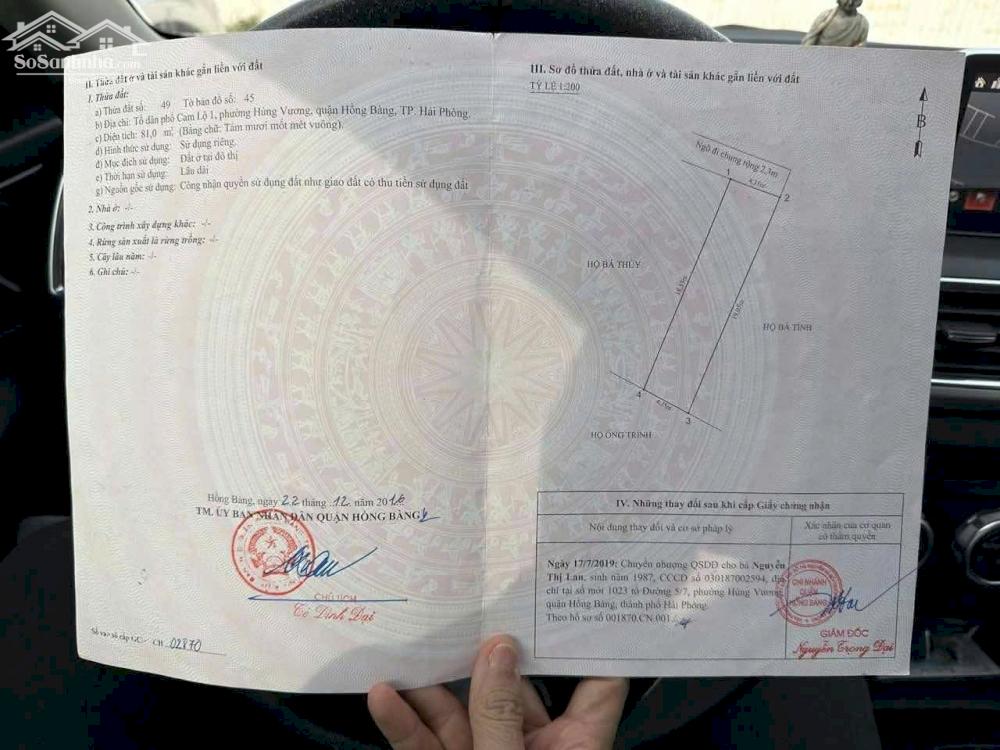 SoSanhnha.com
II. Thửa đất ở và tài sản khác gắn liền với đất
1. Thửa đất:
a) Thửa đất số: 49 Tờ bản đồ số: 45
b) Địa chỉ: Tổ dân phố Cam Lộ 1, phường Hùng Vương, quận Hồng Bàng, TP. Hải Phòng.
c) Diện tích: 81,0 m² (Bằng chữ: Tám mươi mốt mét vuông).
d) Hình thức sử dụng: Sử dụng riêng.
đ) Mục đích sử dụng: Đất ở tại đô thị
e) Thời hạn sử dụng: Lâu dài
g) Nguồn gốc sử dụng: Công nhận quyền sử dụng đất như giao đất có thu tiền sử dụng đất
2. Nhà ở: -/-
3. Công trình xây dựng khác: -/-
4. Rừng sản xuất là rừng trồng: -/-
5. Cây lâu năm: -/-
6. Ghi chú: -/-
Hồng Bàng, ngày 22 tháng 12 năm 2016
TM. ỦY BAN NHÂN DÂN QUẬN HỒNG BÀNG
CHỦ TỊCH
Số vào sổ cấp GCN: CH 02870
III. Sơ đồ thửa đất, nhà ở và tài sản khác gắn liền với đất
TỶ LỆ 1:200
B
Ngõ đi chung rộng 2,3m
1
2
HỘ BÀ THỦY
HỘ BÀ TÌNH
4
3
HỘ ÔNG TRINH
IV. Những thay đổi sau khi cấp Giấy chứng nhận
Nội dung thay đổi và cơ sở pháp lý
Xác nhận của cơ quan
có thẩm quyền
Ngày 17/7/2019: Chuyển nhượng QSDĐ cho bà Nguyễn
Thị Lan, sinh năm 1987, CCCD số 030187002594, địa
chỉ tại số mới 1023 tổ Đường 5/7, phường Hùng Vương,
quận Hồng Bàng, thành phố Hải Phòng.
Theo hồ sơ số 001870.CN.001
CHI NHÁNH
QUẬN
HỒNG BÀNG
GIÁM ĐỐC
Nguyễn Trọng Đại